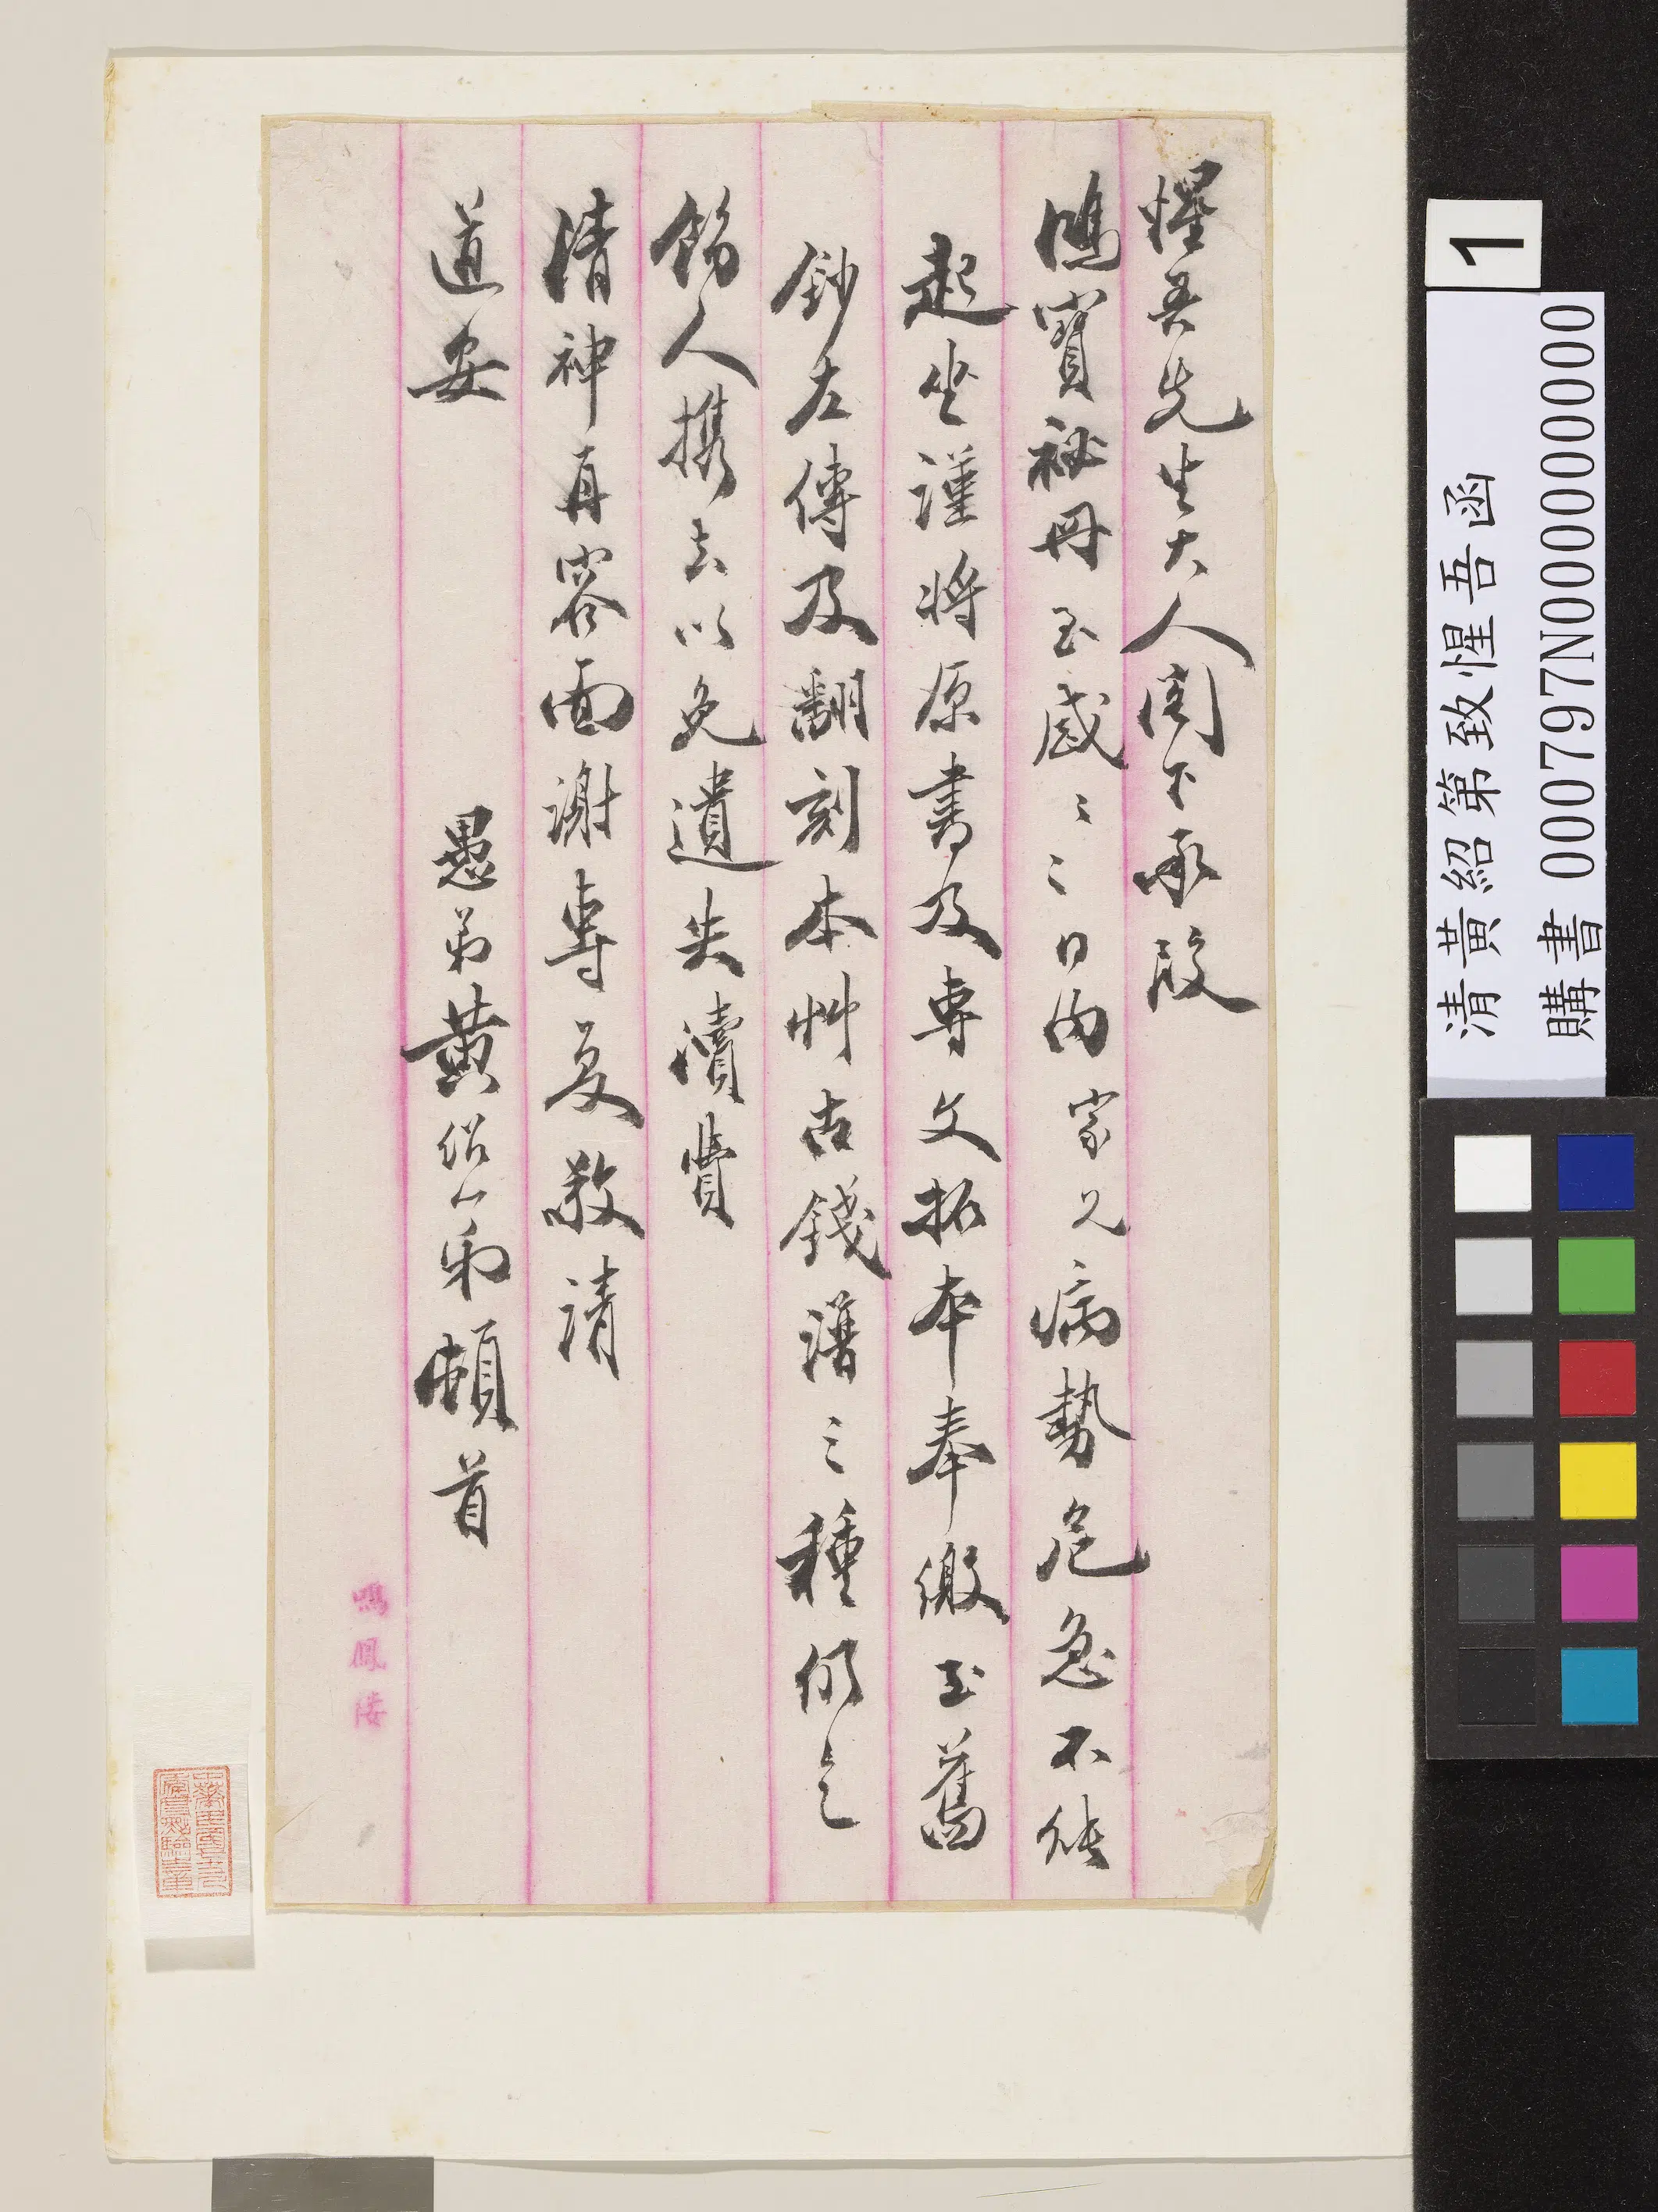 惺吾先生大人閣下承段
鴻寶秘冊至感〻〻日內家父病勢危急不能
起坐謹將原書及專文拓本奉繳至舊
鈔左傳及翻刻本艸古錢譜三種仍乞
飭人携去以免遺失瀆費
清神再容面謝專复敬請
道安
愚弟黃紹弟頓首
鳴鳳
清黃紹第致惺吾函
購書 000797N000000000
1